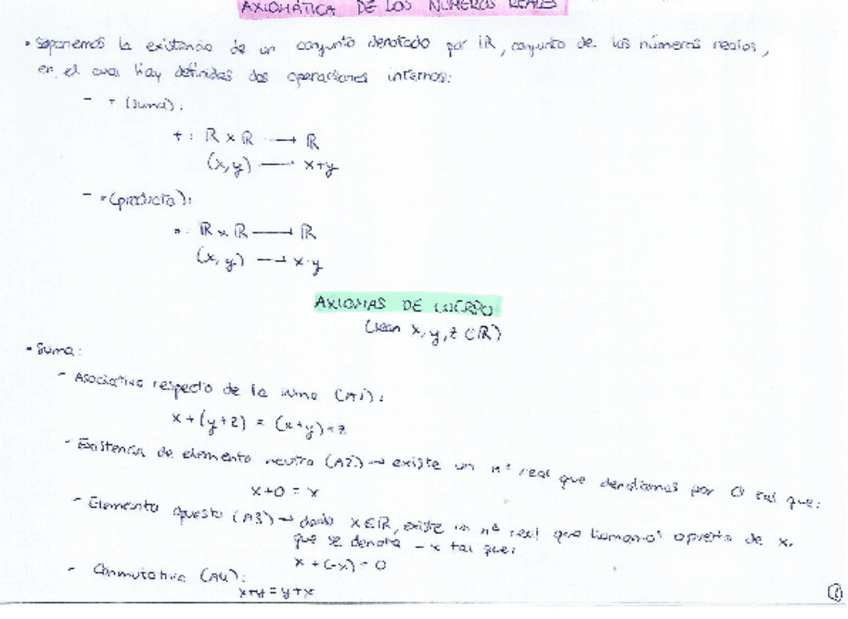 AXIOMÁTICA DE LOS NÚMEROS REALES
• Suponemos la existencia de un conjunto denotado por ℝ, conjunto de los números reales,
en el cual hay definidas dos operaciones internas:
- + (suma):
+ : ℝ × ℝ → ℝ
(x, y) → x+y
- • (producto):
• : ℝ × ℝ → ℝ
(x, y) → x·y
AXIOMAS DE CUERPO
(sean x, y, z ∈ ℝ)
• Suma:
- Asociativa respecto de la suma (A1):
x + (y+z) = (x+y)+z
- Existencia de elemento neutro (A2) → existe un nº real que denotamos por 0 tal que:
x+0 = x
- Elemento opuesto (A3) → dado x∈ℝ, existe un nº real que llamamos opuesto de x,
que se denota -x tal que:
x + (-x) = 0
- Conmutativa (A4):
x+y = y+x
1